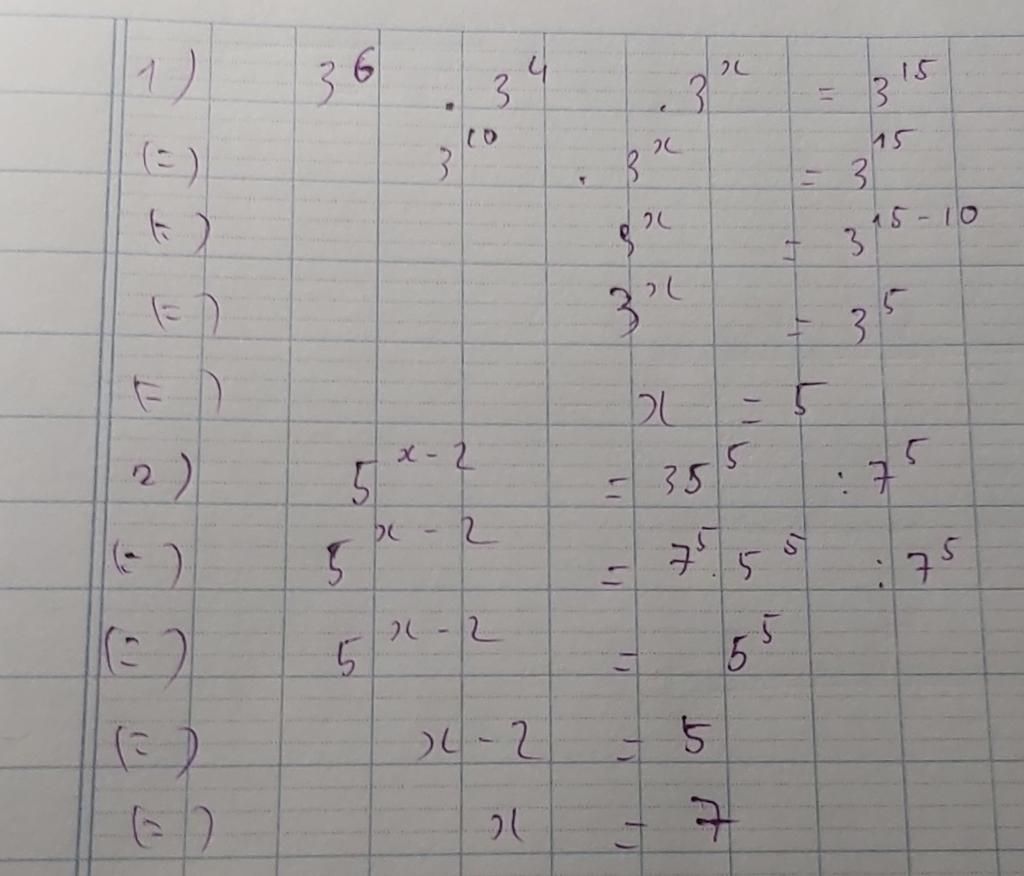 1) 3⁶ . 3⁴ . 3ˣ = 3¹⁵
(=) 3¹⁰ . 3ˣ = 3¹⁵
(=) 3ˣ = 3¹⁵⁻¹⁰
(=) 3ˣ = 3⁵
(=) x = 5
2) 5ˣ⁻² = 35⁵ : 7⁵
(=) 5ˣ⁻² = 7⁵ . 5⁵ : 7⁵
(=) 5ˣ⁻² = 5⁵
(=) x - 2 = 5
(=) x = 7